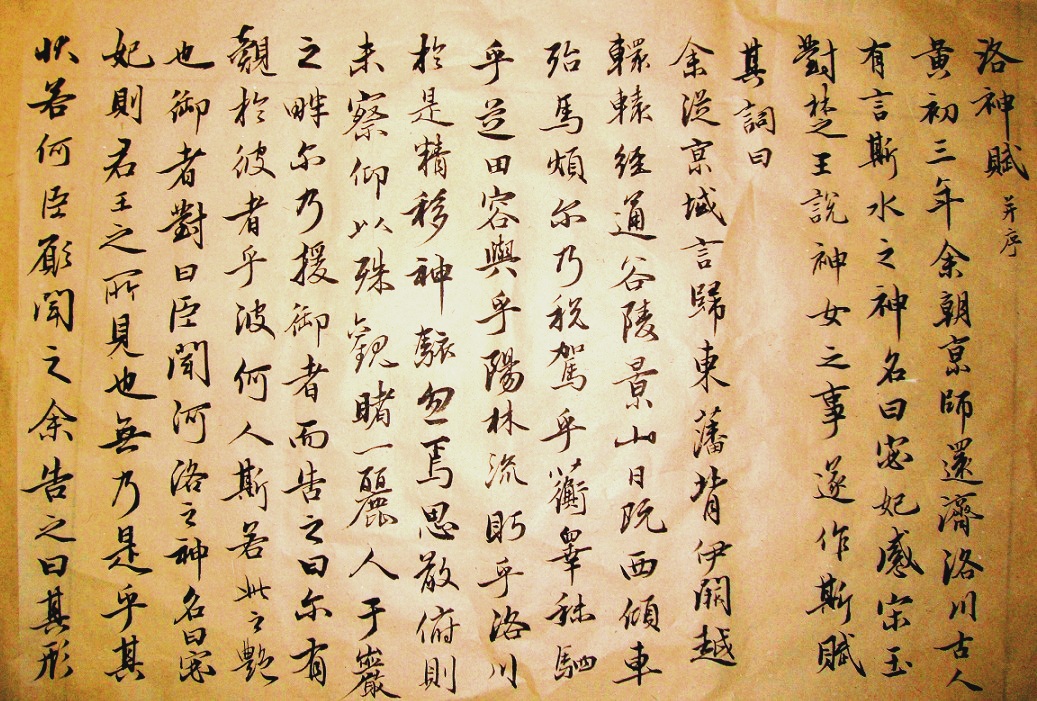 洛神賦 并序
黄初三年余朝京師還濟洛川古人
有言斯水之神名曰宓妃感宋玉
對楚王說神女之事遂作斯賦
其詞曰
余從京域言歸東藩背伊闕越
轘轅經通谷陵景山日既西傾車
殆馬煩尔乃税駕乎蘅皐秣駟
乎芝田容與乎陽林流眄乎洛川
於是精移神駭忽焉思散俯則
未察仰以殊觀睹一麗人于巖
之畔尔乃援御者而告之曰尔有
覿於彼者乎彼何人斯若此之艷
也御者對曰臣聞河洛之神名曰宓
妃則君王之所見也無乃是乎其
狀若何臣願聞之余告之曰其形